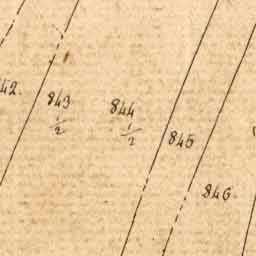 843
1/2
844
1/2
845
846.